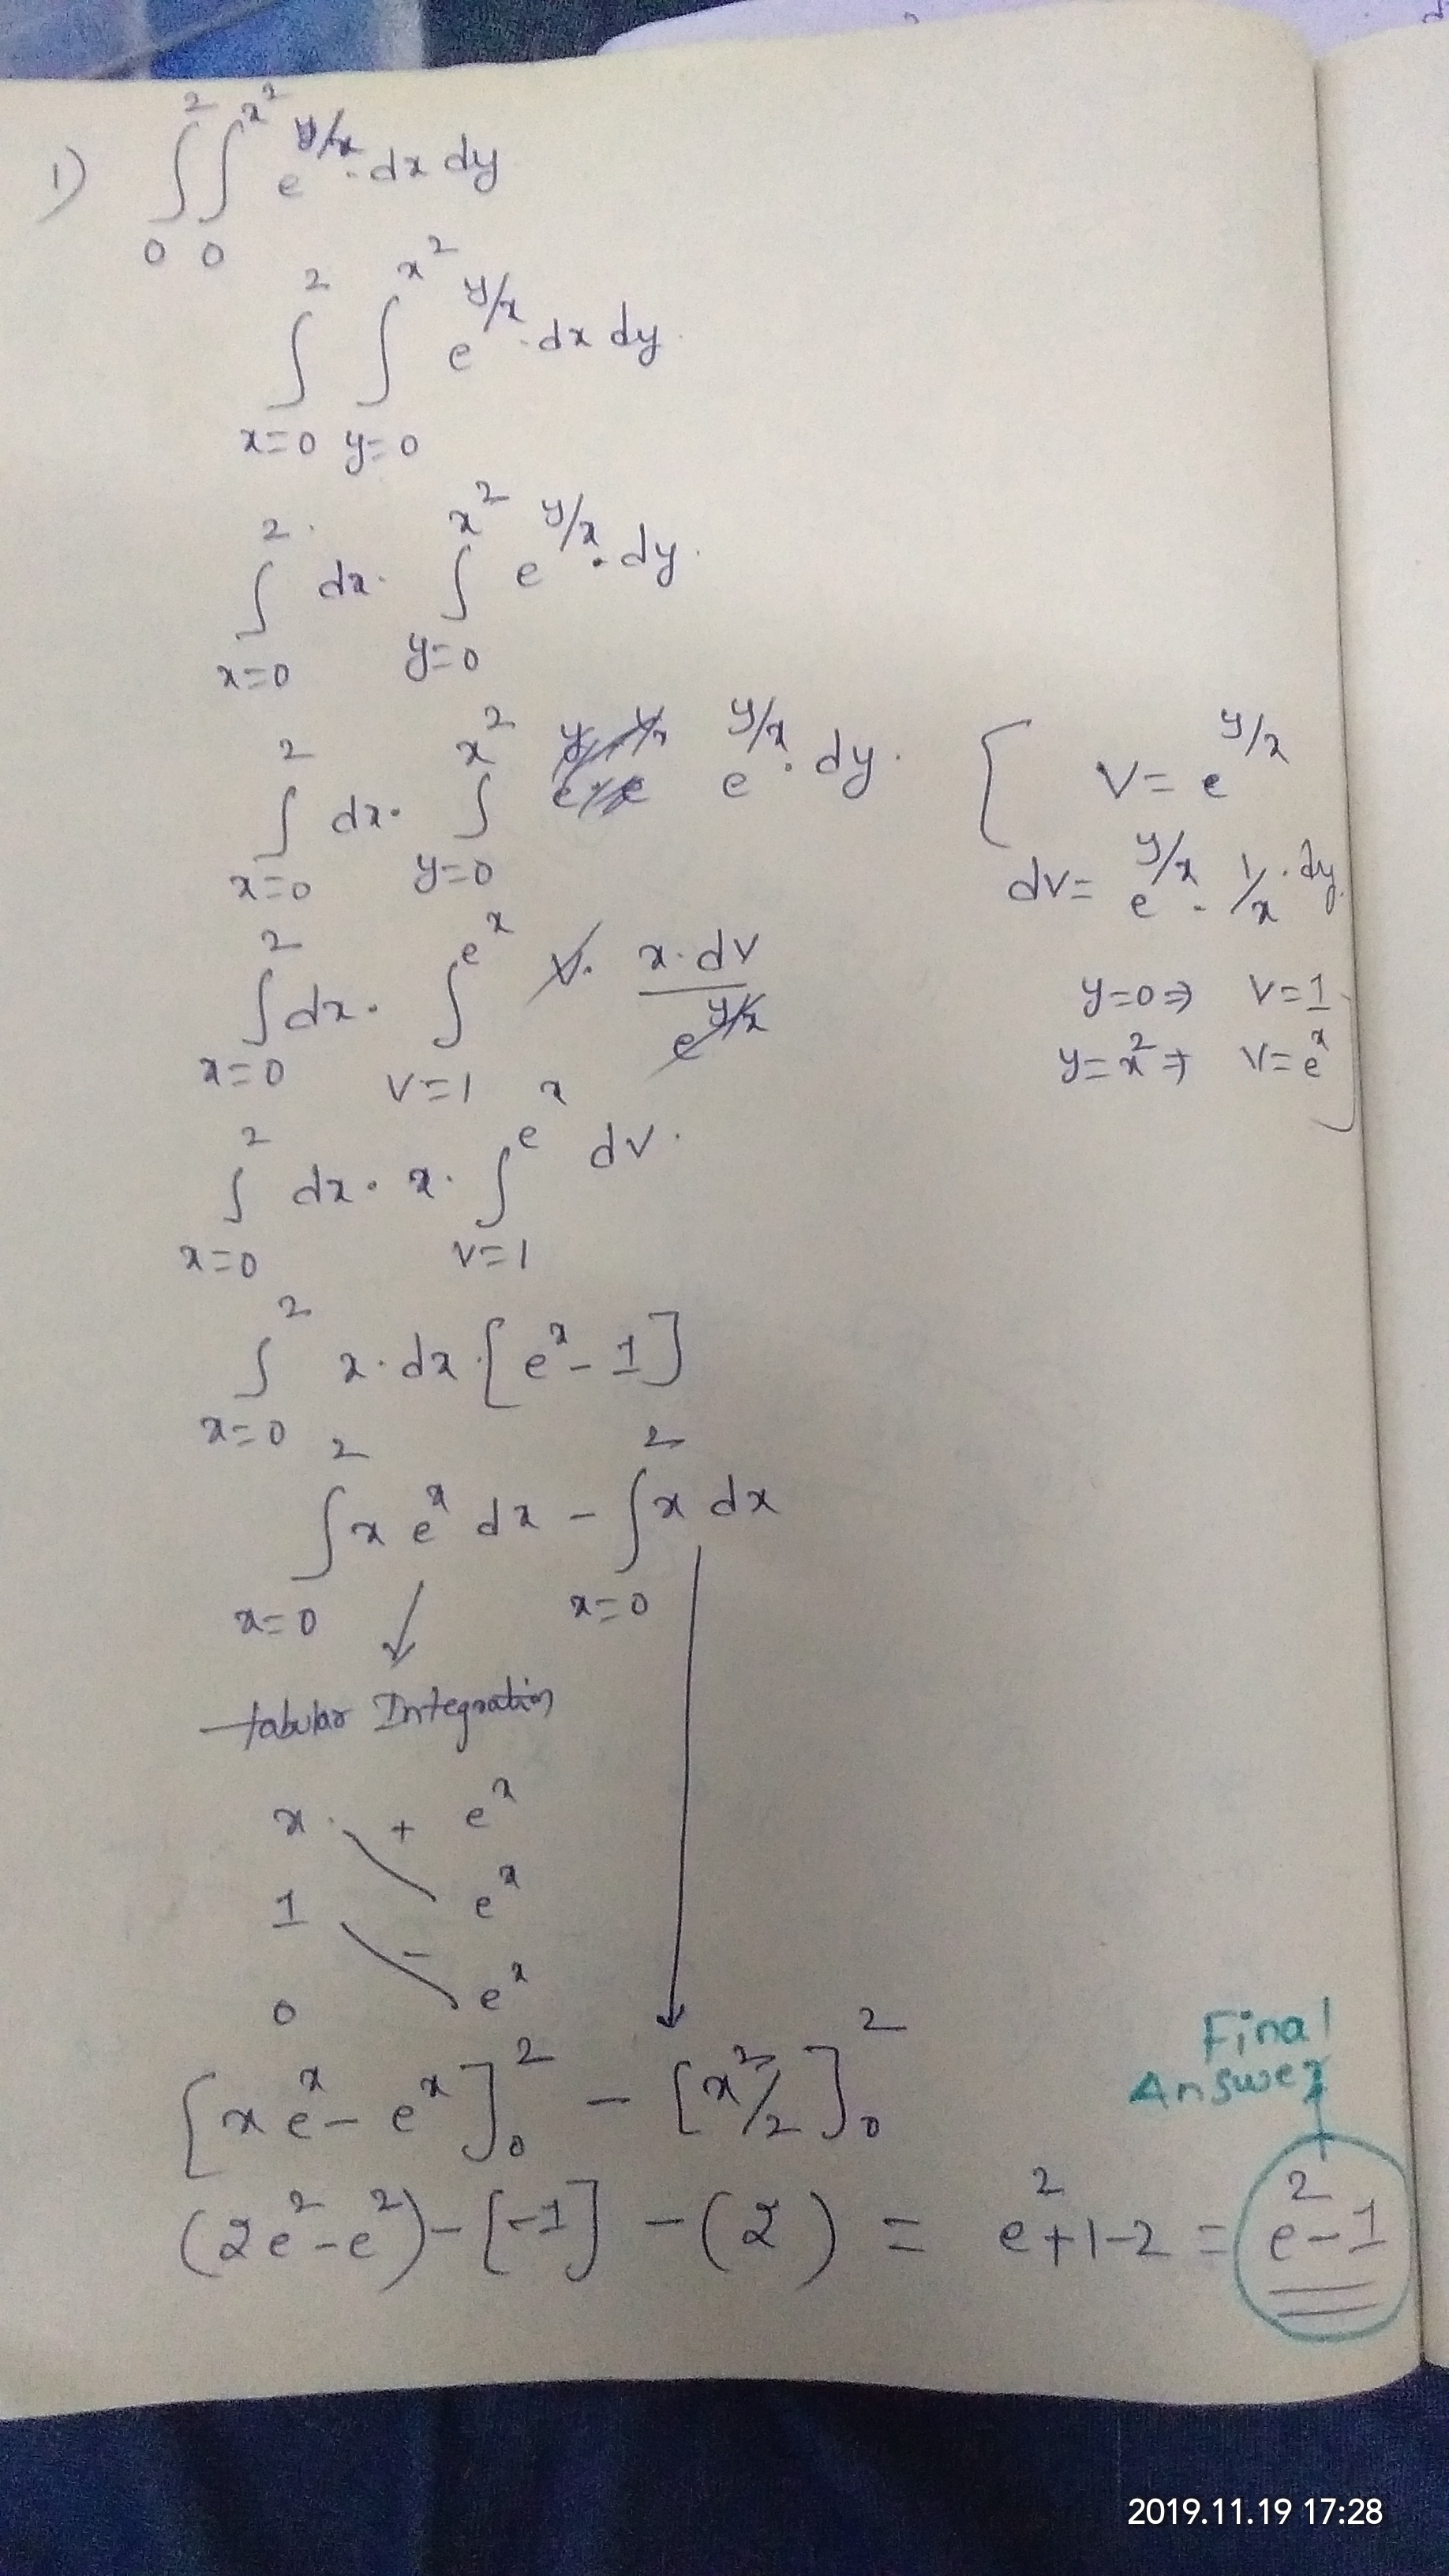 1) ∫₀² ∫₀^{x²} e^{y/x} · dx dy
∫_{x=0}^{2} ∫_{y=0}^{x²} e^{y/x} · dx dy.
∫_{x=0}^{2} dx · ∫_{y=0}^{x²} e^{y/x} · dy.
∫_{x=0}^{2} dx · ∫_{y=0}^{x²} e^{y/x} · dy. [ V = e^{y/x}
dV = e^{y/x} · 1/x · dy.
∫_{x=0}^{2} dx · ∫_{V=1}^{e^x} V · x·dV / e^{y/x}
y=0 ⇒ V=1
y=x² ⇒ V=e^x ]
∫_{x=0}^{2} dx · x · ∫_{V=1}^{e^x} dV.
∫_{x=0}^{2} x · dx · [e^x - 1]
∫_{x=0}^{2} x e^x dx - ∫_{x=0}^{2} x dx
tabular Integration
x + e^x
1 e^x
-
0 e^x
[x e^x - e^x]₀² - [x²/2]₀²
Final
Answer
(2e² - e²) - [-1] - (2) = e² + 1 - 2 = e² - 1
2019.11.19 17:28